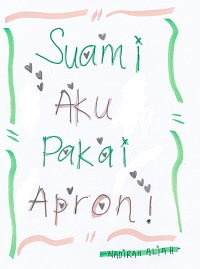 Suami
Aku
Pakai
Apron!
NADIRAH ALIAH